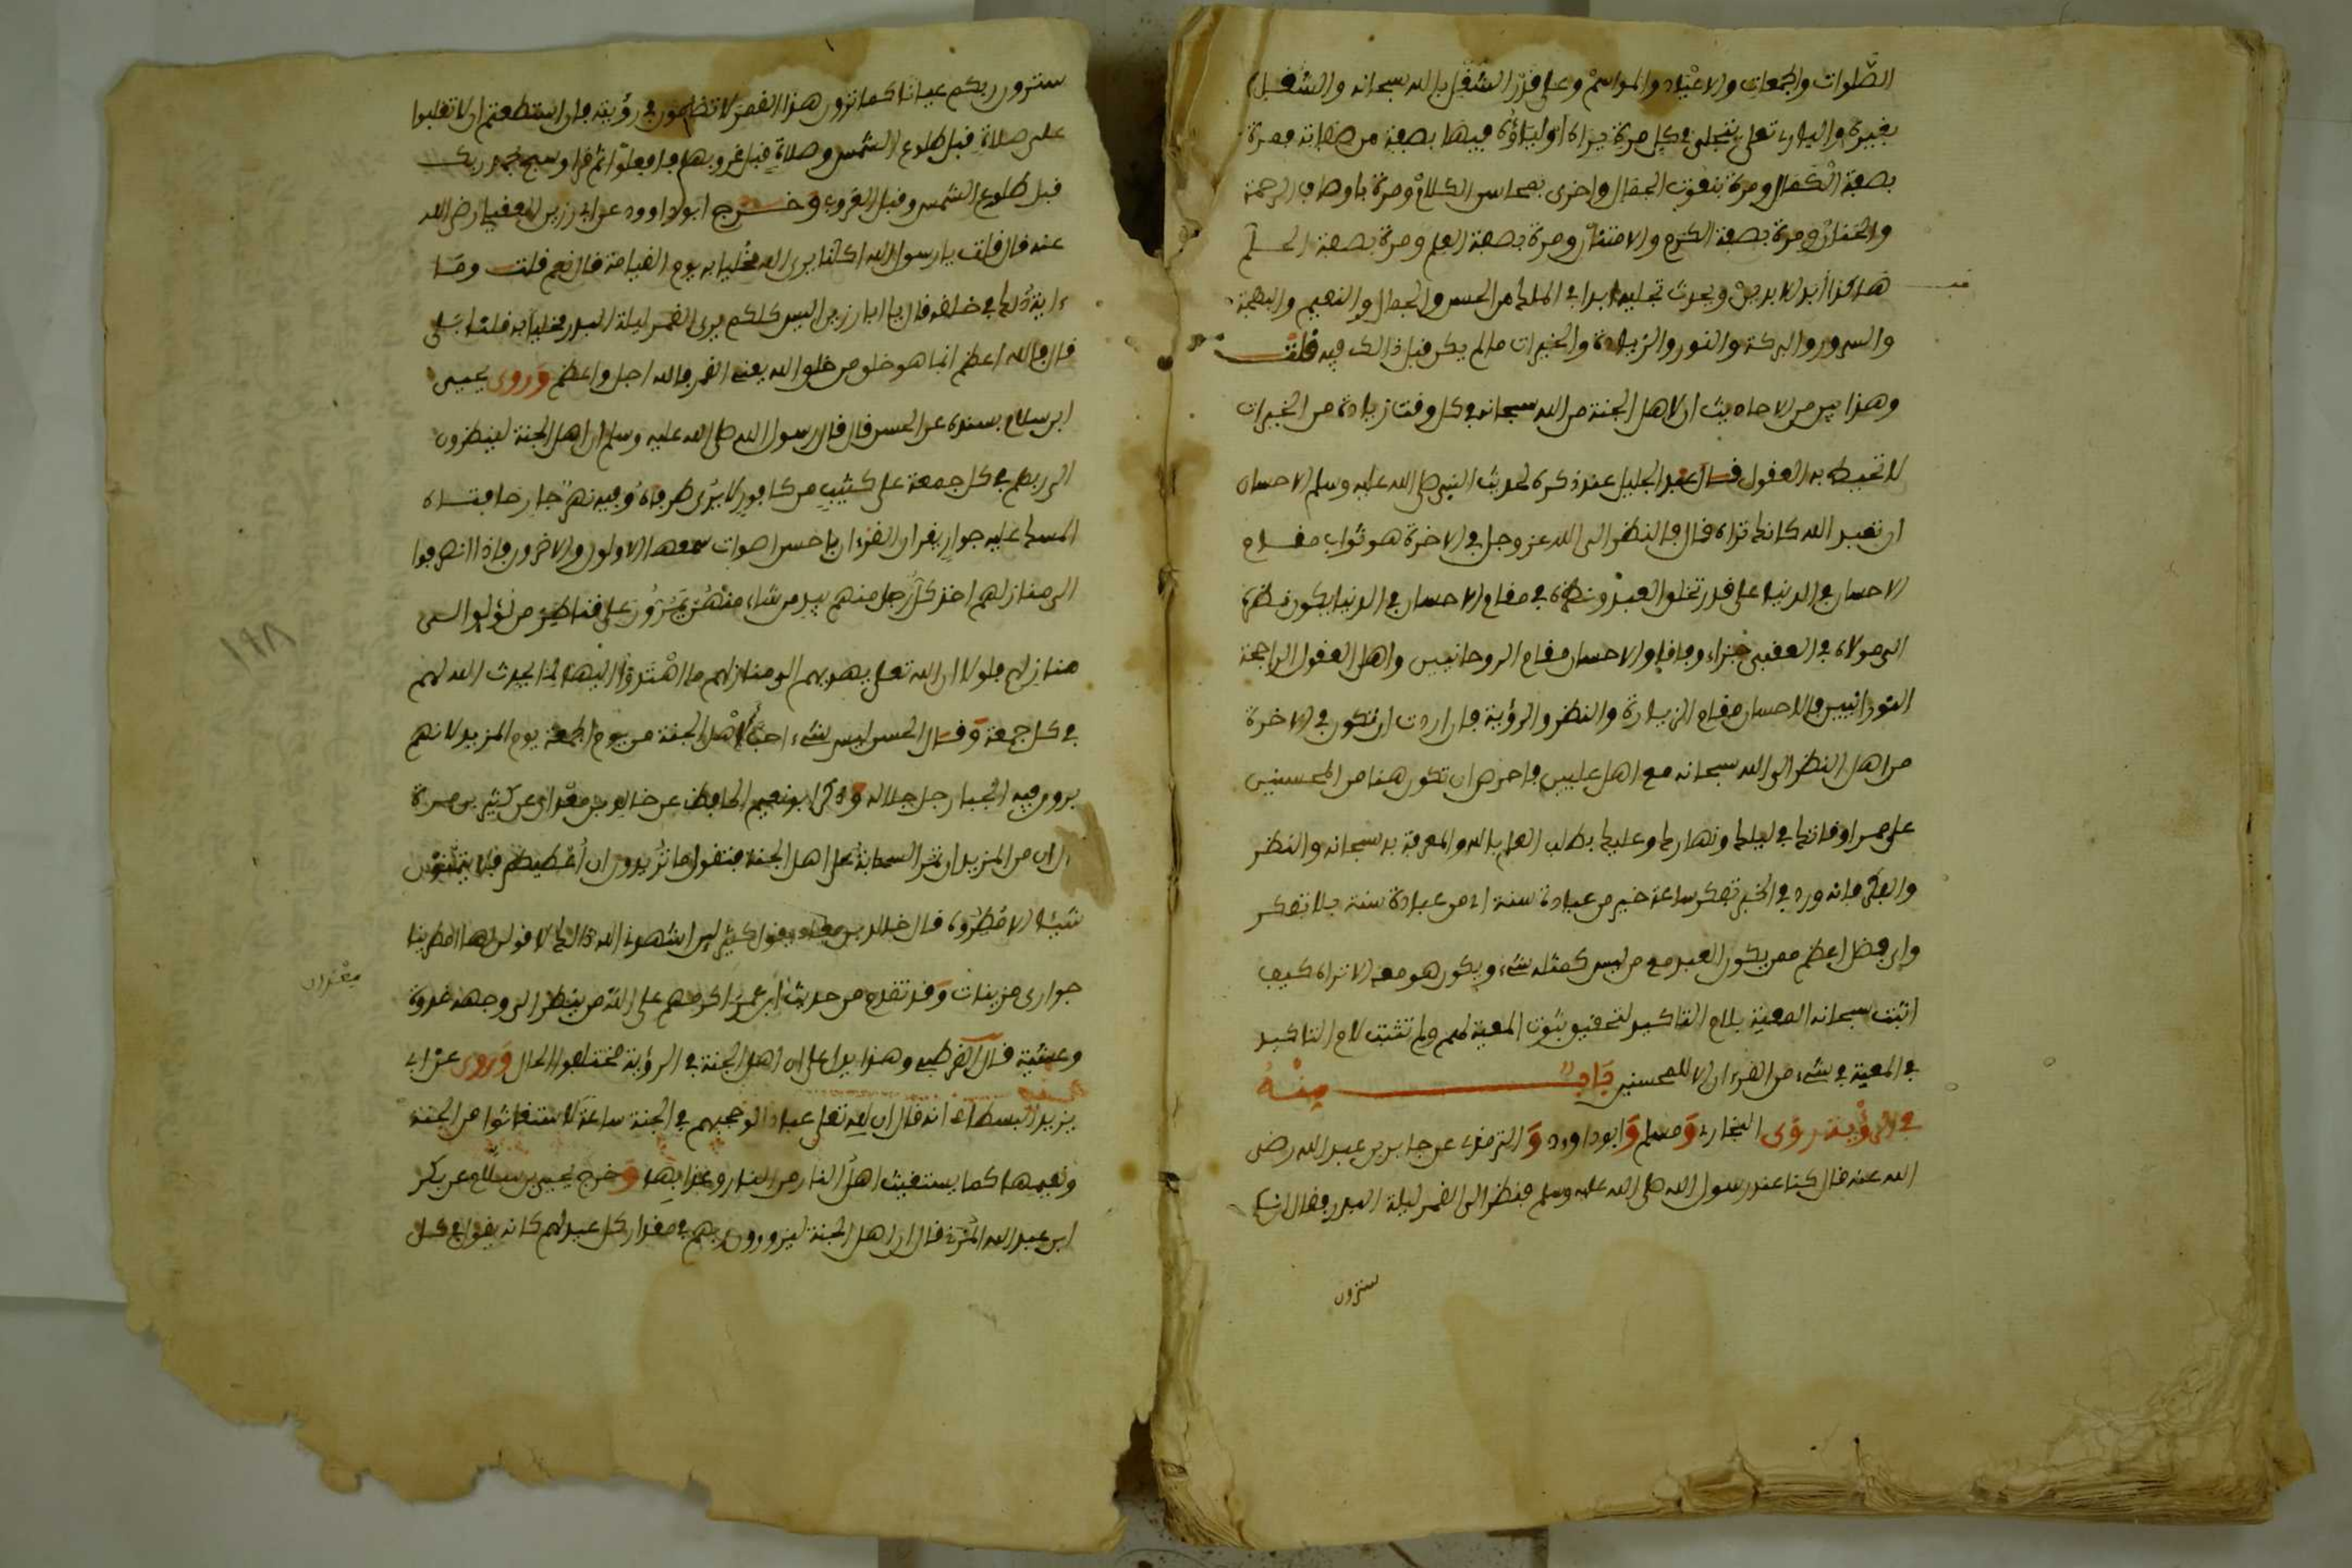 الصلوات والجمعات والاعياد والمواسم وعلى قدر الشغل بالله سبحانه والشغل
بغيره والباري تعلى يتجلى في كل مرة يراه اولياؤه فيها بصفة من صفاته فمرة
بصفة الكمال ومرة بنعوت الجمال واخرى بمحاسن الكلام ومرة باوصاف الرحمة
والحنان ومرة بصفة الكرم والامتنان ومرة بصفة العلم ومرة بصفة الحلم
هاكذا ابد الابدين ويحدث تجليه ابدا في الملك من الحسن والجمال والنعيم والبهجة
والسرور والبركة والنور والزيادة والخيرات ما لم يكن قبل ذالك فيه قلت
وهذا بين من الاحاديث ان لاهل الجنة من الله سبحانه في كل وقت زيادة من الخيرات
لا تحيط به العقول قال عبد الجليل عند ذكره لحديث النبي صلى الله عليه وسلم الاحسان
ان تعبد الله كانك تراه قال فالنظر الى الله عز وجل في الاخرة هو ثواب مقام
الاحسان في الدنيا على قدر تخلق العبد ونظره في مقام الاحسان في الدنيا يكون نظره
الى مولاه في العقبى جزاء وفاقا والاحسان مقام الروحانيين واهل العقول الراجحة
النورانيين فالاحسان مقام الزيادة والنظر والرؤية فان اردت ان تكون في الاخرة
من اهل النظر الى الله سبحانه مع اهل عليين فاحرص ان تكون هنا من المحسنين
على مر اوقاتك في ليلك ونهارك وعليك بطلب العلم بالله والمعرفة به سبحانه والنظر
والفكر فانه ورد في الخبر تفكر ساعة خير من عبادة سنة اي من عبادة سنة بلا تفكر
واي فضل اعظم ممن يكون العبد مع من ليس كمثله شيء ويكون هو معه الا تراه كيف
اثبت سبحانه المعية بلام التاكيد لتحقيق ثبوت المعية لهم ولم تثبت لام التاكيد
في المعية في شيء من القرءان الا للمحسنين باب منه
في الرؤية روى البخاري ومسلم وابو داوود والترمذي عن جابر بن عبد الله رضي
الله عنه قال كنا عند رسول الله صلى الله عليه وسلم فنظر الى القمر ليلة البدر فقال انكم
سترون
سترون ربكم عيانا كما ترون هذا القمر لا تضامون في رؤيته فان استطعتم ان لا تغلبوا
على صلاة قبل طلوع الشمس وصلاة قبل غروبها فافعلوا ثم قرا وسبح بحمد ربك
قبل طلوع الشمس وقبل الغروب وخرج ابو داوود عن ابي رزين العقيلي رضي الله
عنه قال قلت يا رسول الله اكلنا يرى الله مخليا به يوم القيامة قال نعم قلت وما
ءاية ذلك في خلقه قال يا ابا رزين اليس كلكم يرى القمر ليلة البدر مخليا به قلنا بلى
قال فالله اعظم انما هو خلق من خلق الله يعني القمر فالله اجل واعظم وروى يحيى
ابن سلام بسنده عن الحسن قال قال رسول الله صلى الله عليه وسلم ان اهل الجنة لينظرون
الى ربهم في كل جمعة على كثيب من كافور لا يرى طرفاه وفيه نهر جار حافتاه
المسك عليه جوار يقران القرءان باحسن اصوات سمعها الاولون والاخرون فاذا انصرفوا
الى منازلهم اخذ كل رجل منهم بيد من شاء منهن ثم يمرون على قناطير من لؤلؤ الى
منازلهم فلولا ان الله تعلى يهديهم الى منازلهم ما اهتدوا اليها لما يحدث الله لهم
في كل جمعة وقال الحسن ليس شيء احب لاهل الجنة من يوم الجمعة يوم المزيد لانهم
يرون فيه الجبار جل جلاله وذكر ابو نعيم الحافظ عن خالد بن معدان عن كثير بن مرة
ان من المزيد ان تمر السحابة على اهل الجنة فتقول ما تريدون ان امطركم فلا يتمنون
شيئا الا مطروه قال خالد بن معدان يقول كثير لين اشهدني الله ذالك لاقولن لها امطرينا
معدان
جواري مزينات وقد تقدم من حديث ابن عمر اكرمهم على الله من ينظر الى وجهه غدوة
وعشية قال القرطبي وهذا يدل على ان اهل الجنة في الرؤية مختلفوا الحال وروى عن ابي
يزيد البسطامي انه قال ان لله تعلى عبادا لو حجبهم في الجنة ساعة لاستغاثوا من الجنة
ونعيمها كما يستغيث اهل النار من النار وعذابها وخرج يحيى بن سلام عن بكر
ابن عبد الله المزني قال ان اهل الجنة ليزورون ربهم في مقدار كل عيد لهم كانه يقول في كل